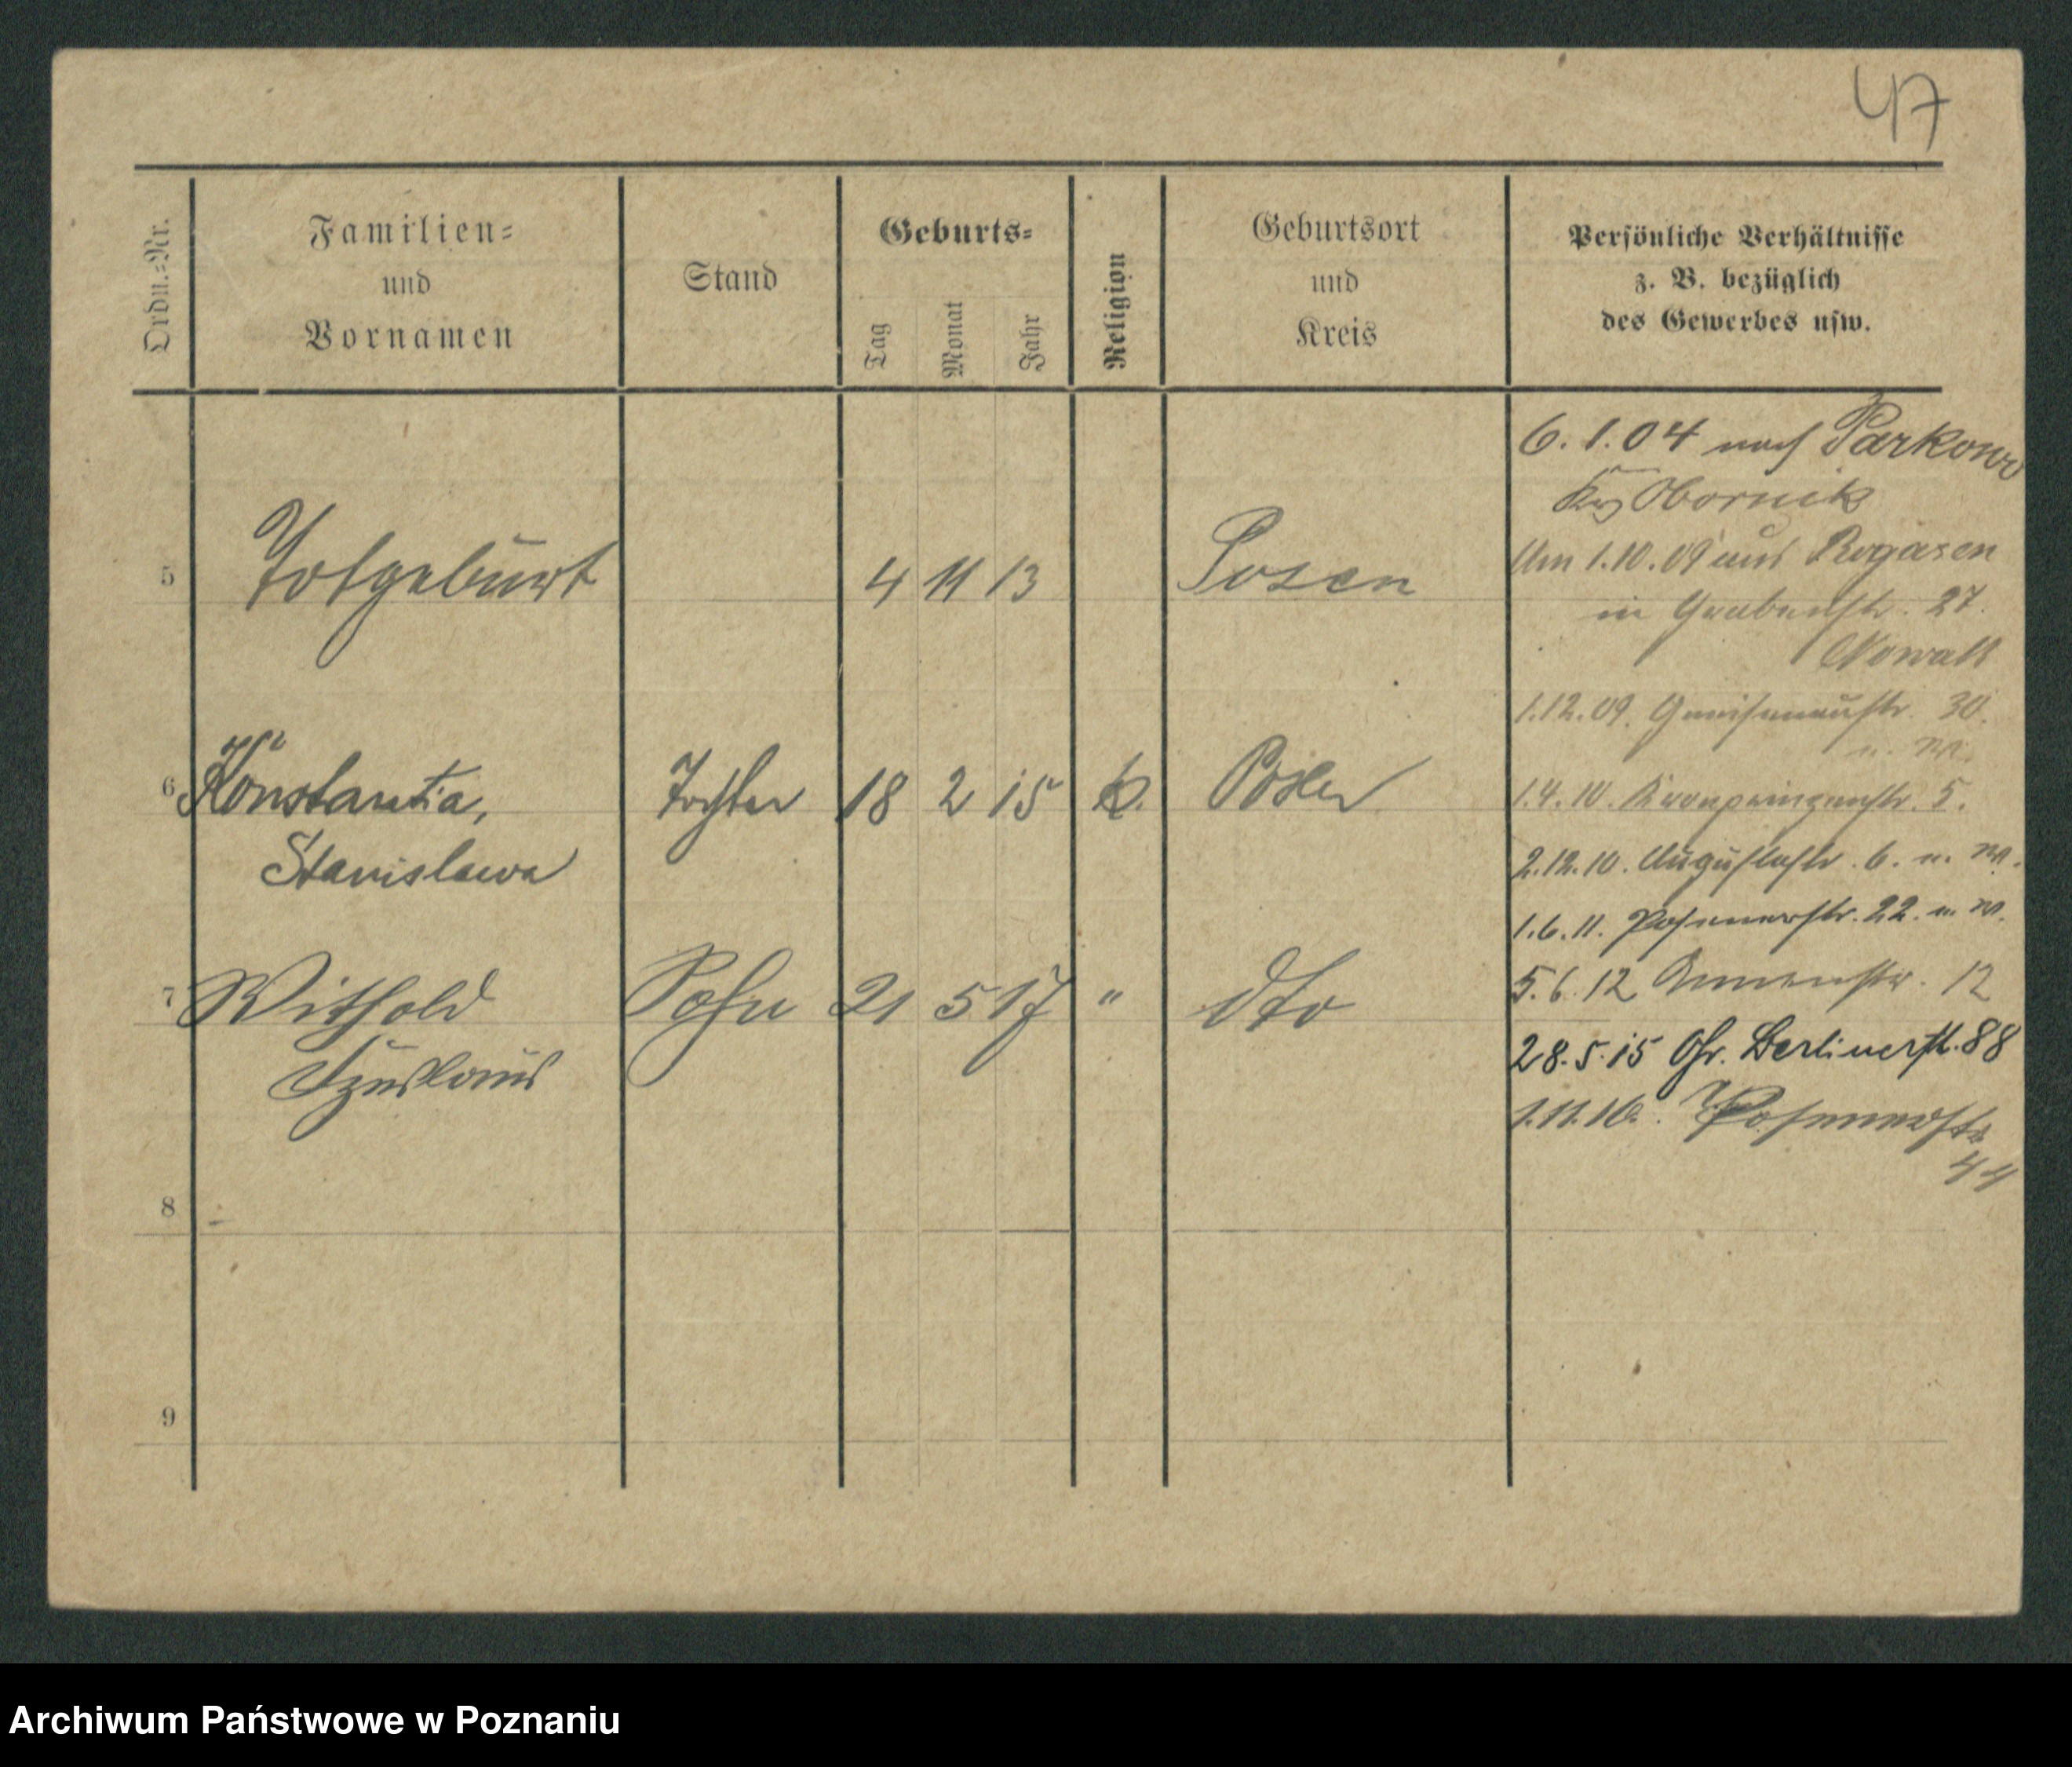 47
Ordn.-Nr.
Familien-
und
Vornamen
Stand
Geburts-
Tag
Monat
Jahr
Religion
Geburtsort
und
Kreis
Persönliche Verhältnisse
z. B. bezüglich
des Gewerbes usw.
6. 1. 04 nach Parkowo
Kr Obornik
5 Totgeburt 4 11 13 Posen
Um 1.10.09 aus Rogasen
in Grabenstr. 27.
Nowak
1.12.09. Gneisenaustr. 30.
u. W.
6 Konstantia, Tochter 18 2 15 k. Posen
Stanislawa
1.4.10. Kronprinzenstr. 5.
2.12.10. Augustastr. 6. u. W.
1.6.11. Posenerstr. 22. u. W.
7 Withold Sohn 21 5 17 " dto
5.6.12 Annenstr. 12
28.5.15 Gr. Berlinerstr. 88
1.11.16. Posenerstr
44
8
9
Archiwum Państwowe w Poznaniu